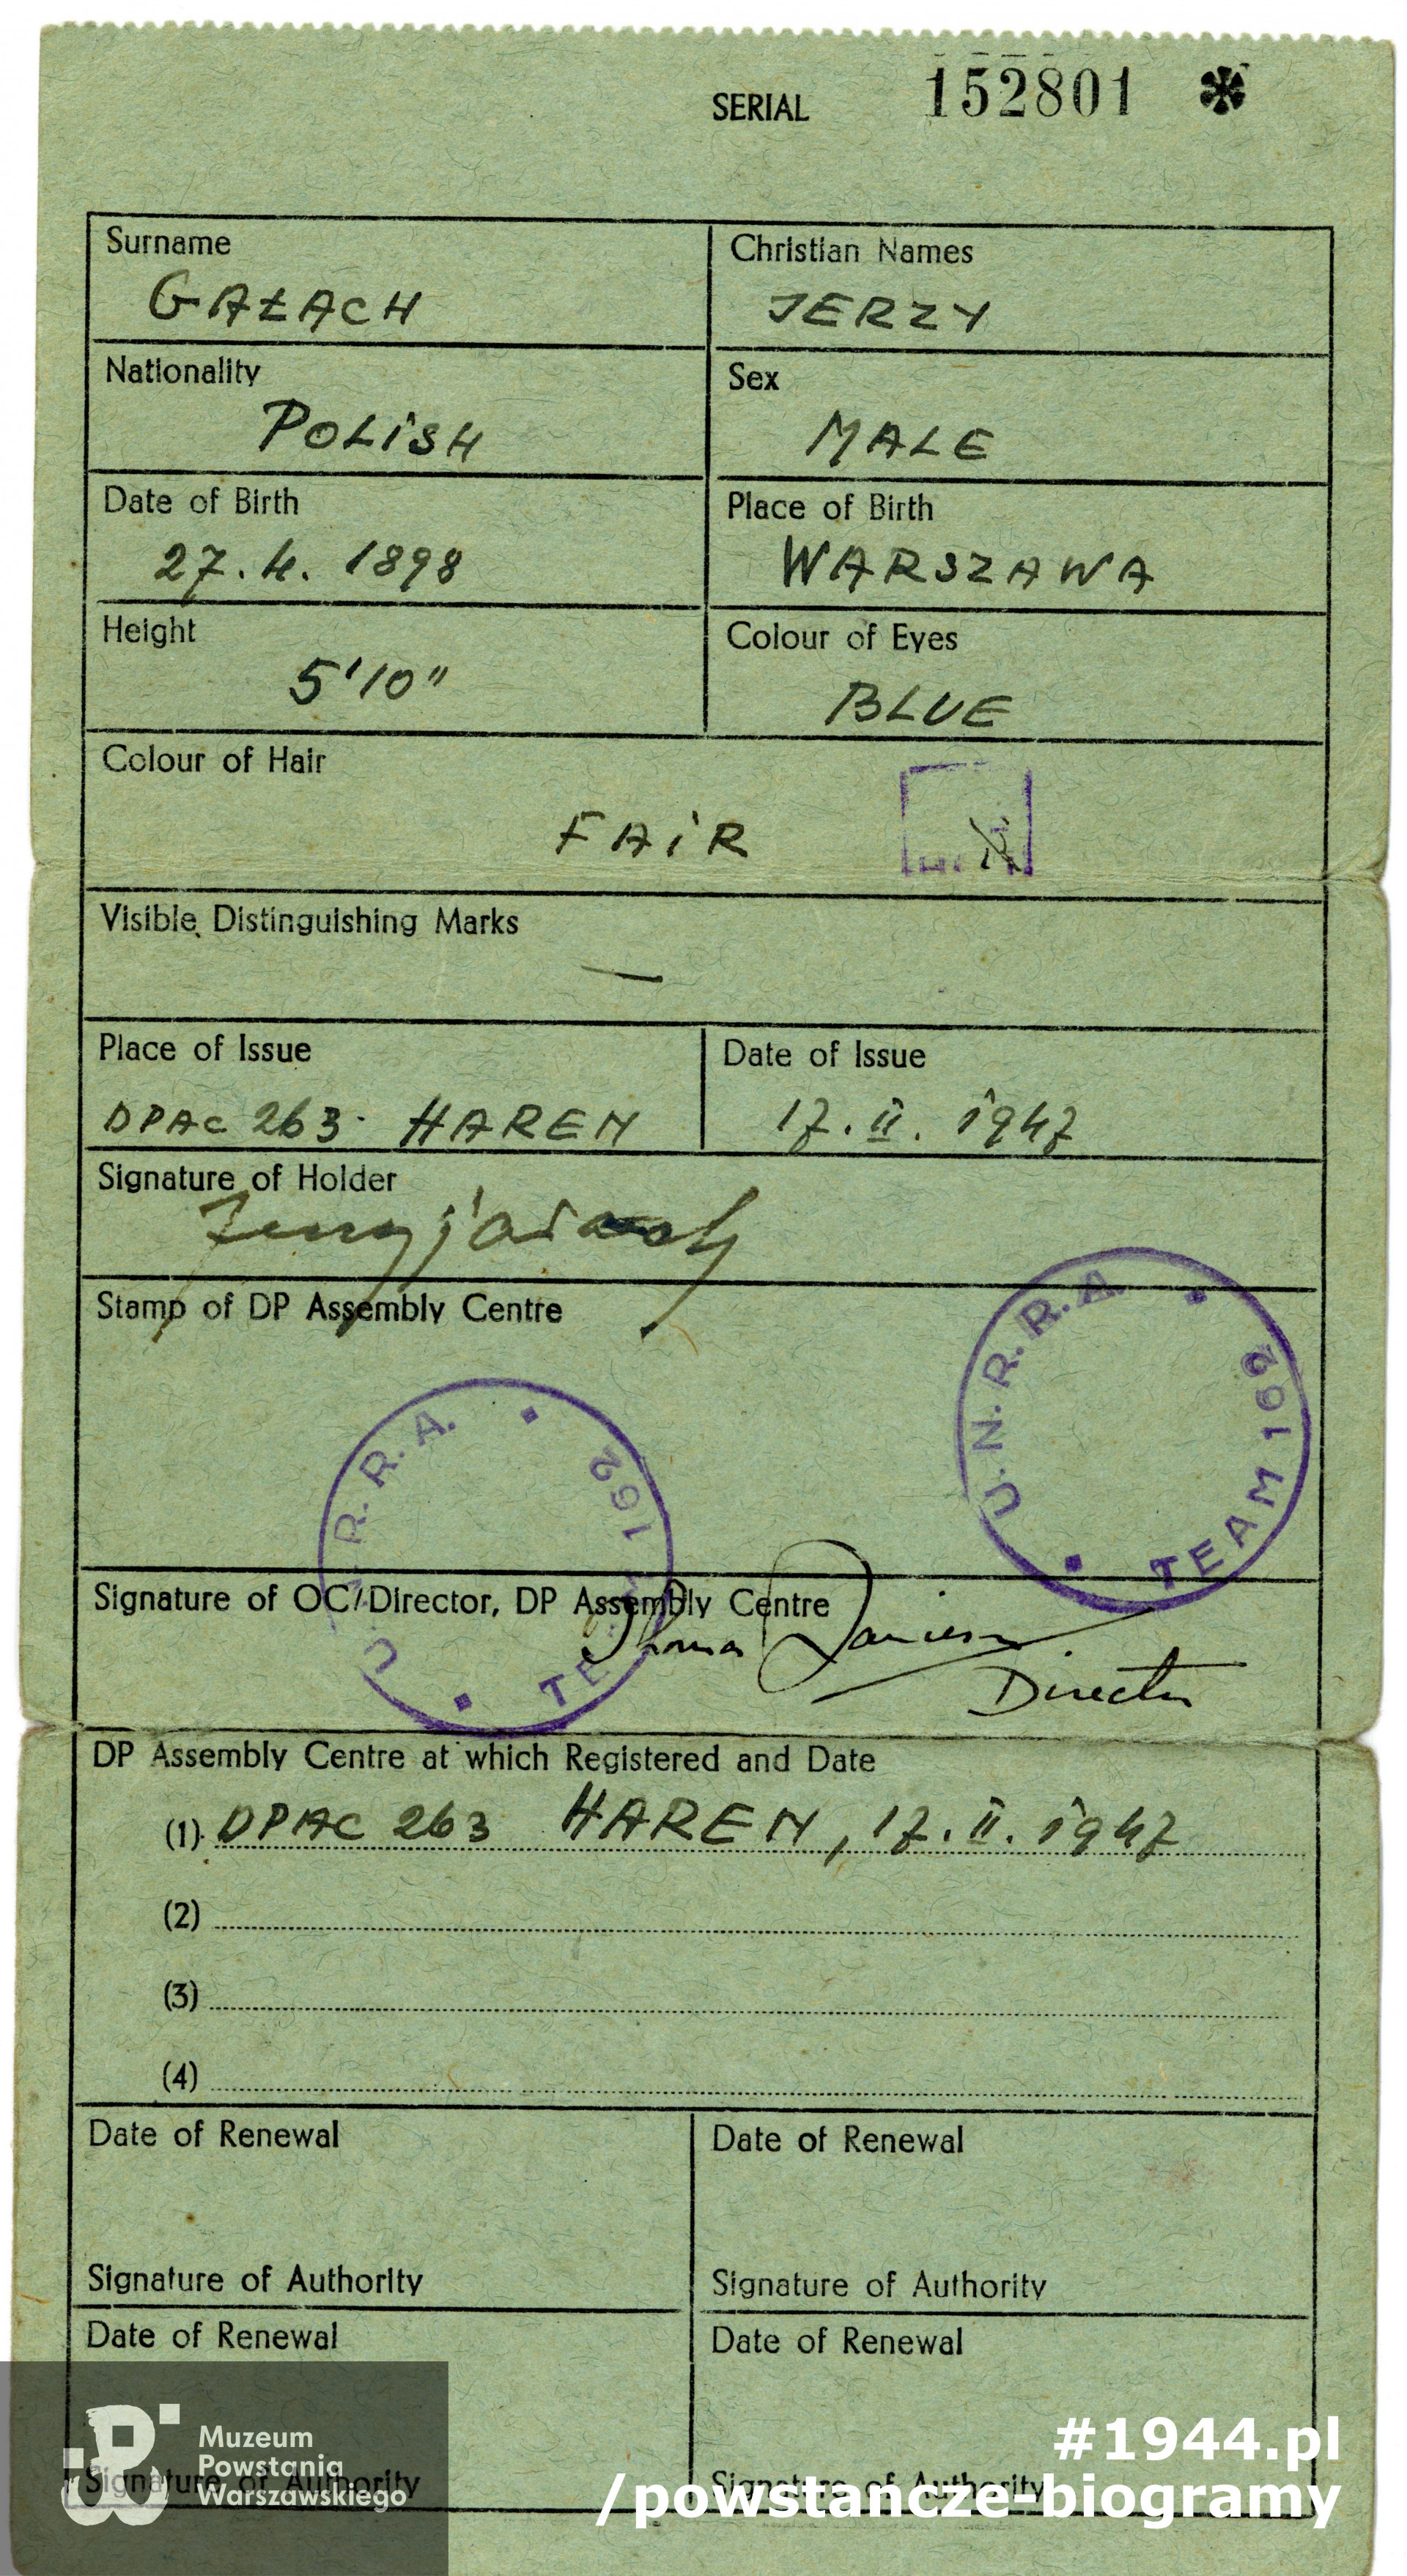 SERIAL 152801 *
Surname
GAŁACH
Christian Names
JERZY
Nationality
POLiSH
Sex
MALE
Date of Birth
27.4. 1898
Place of Birth
WARSZAWA
Height
5'10"
Colour of Eyes
BLUE
Colour of Hair
FAiR
Visible Distinguishing Marks
—
Place of Issue
DPAC 263 HAREN
Date of Issue
17. II. 1947
Signature of Holder
Stamp of DP Assembly Centre
U.N.R.R.A. TEAM 162
U. R.R.A. TE 162
Signature of OC/Director, DP Assembly Centre
Thomas
Director
DP Assembly Centre at which Registered and Date
(1) DPAC 263 HAREN, 17. II. 1947
(2)
(3)
(4)
Date of Renewal
Signature of Authority
Date of Renewal
Signature of Authority
Date of Renewal
Signature of Authority
Date of Renewal
Signature of Authority
Muzeum
Powstania
Warszawskiego
#1944.pl
/powstancze-biogramy